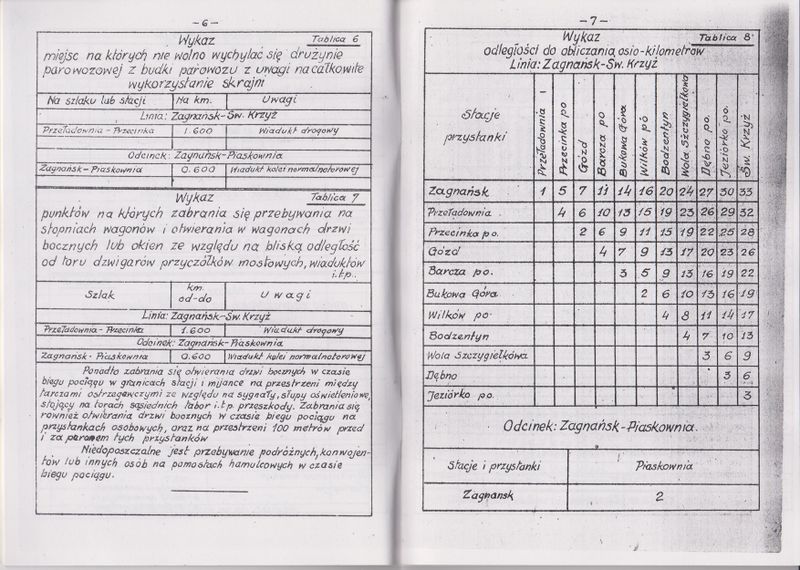 – 6 –
Wykaz Tablica 6
miejsc na których nie wolno wychylać się drużynie
parowozowej z budki parowozu z uwagi na całkowite
wykorzystanie skrajni
Na szlaku lub stacji Na km. Uwagi
Linia: Zagnańsk-Św. Krzyż
Przeładownia - Przecinka 1.600 Wiadukt drogowy
Odcinek: Zagnańsk-Piaskownia
Zagnańsk-Piaskownia 0.600 Wiadukt kolei normalnotorowej
Wykaz Tablica 7
punktów na których zabrania się przebywania na
stopniach wagonów i otwierania w wagonach drzwi
bocznych lub okien ze względu na bliską odległość
od toru dzwigarów przyczółków mostowych, wiaduktów
i.t.p.
Szlak km. od-do Uwagi
Linia: Zagnańsk-Św. Krzyż
Przeładownia - Przecinka 1.600 Wiadukt drogowy
Odcinek: Zagnańsk-Piaskownia
Zagnańsk - Piaskownia 0.600 Wiadukt kolei normalnotorowej
Ponadto zabrania się otwierania drzwi bocznych w czasie
biegu pociągu w granicach stacji i mijance na przestrzeni między
tarczami ostrzegawczymi ze względu na sygnały, słupy oświetleniowe,
stojący na torach sąsiednich tabor i.t.p. przeszkody. Zabrania się
również otwierania drzwi bocznych w czasie biegu pociągu na
przystankach osobowych, oraz na przestrzeni 100 metrów przed
i za peronem tych przystanków
Niedopuszczalne jest przebywanie podróżnych, konwojen-
tów lub innych osób na pomostach hamulcowych w czasie
biegu pociągu.
– 7 –
Wykaz Tablica 8
odległości do obliczania osio-kilometrów
Linia: Zagnańsk-Św. Krzyż
Stacje
przystanki
Przeładownia
Przecinka po
Gózd
Barcza po
Bukowa Góra
Wilków po
Bodzentyn
Wola Szczygiełkowa
Dębno po.
Jeziórko po.
Św. Krzyż
Zagnańsk 1 5 7 11 14 16 20 24 27 30 33
Przeładownia 4 6 10 13 15 19 23 26 29 32
Przecinka po. 2 6 9 11 15 19 22 25 28
Gózd 4 7 9 13 17 20 23 26
Barcza po. 3 5 9 13 16 19 22
Bukowa Góra 2 6 10 13 16 19
Wilków po. 4 8 11 14 17
Bodzentyn 4 7 10 13
Wola Szczygiełkowa 3 6 9
Dębno 3 6
Jeziórko po. 3
Odcinek: Zagnańsk-Piaskownia.
Stacje i przystanki Piaskownia
Zagnańsk 2